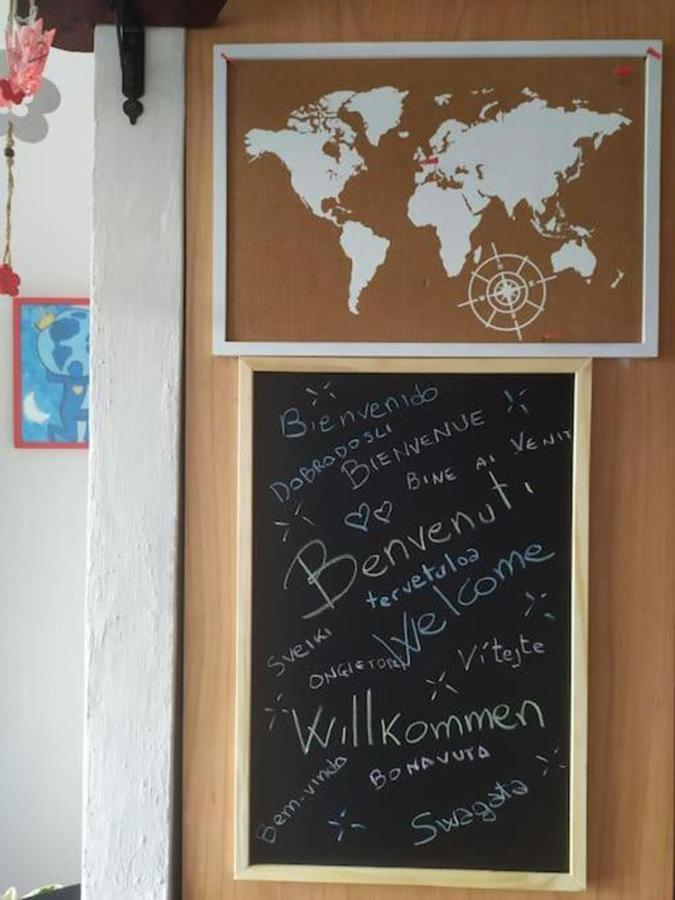 Bienvenido
DOBRODOSLI
BIENVENUE
BINE AI VENIT
Benvenuti
tervetuloa
Welcome
Sveiki
ONGIETORRI
Vítejte
Willkommen
BONAVUTA
Bem-vindo
Swagata